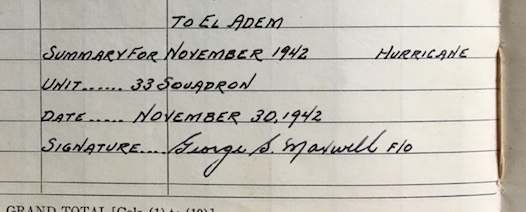 TO EL ADEM
SUMMARY FOR NOVEMBER 1942 HURRICANE
UNIT...... 33 SQUADRON
DATE..... NOVEMBER 30, 1942
SIGNATURE.... George S. Maxwell F/O
GRAND TOTAL [Cols. (1) to (10)]